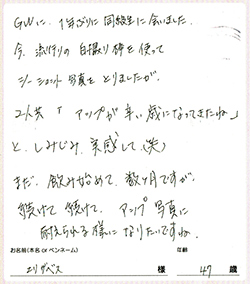 GWに、1年ぶりに同級生に会いました。
今、流行りの自撮り棒を使って
ツーショット写真をとりましたが、
2人共「アップが辛い歳になってきたね」
と、しみじみ実感して(笑)
まだ、飲み始めて、数ヶ月ですが、
続けて続けて、アップ写真に
耐えられる様になりたいですね。
お名前(本名 or ペンネーム) 年齢
エリザベス 様 47 歳